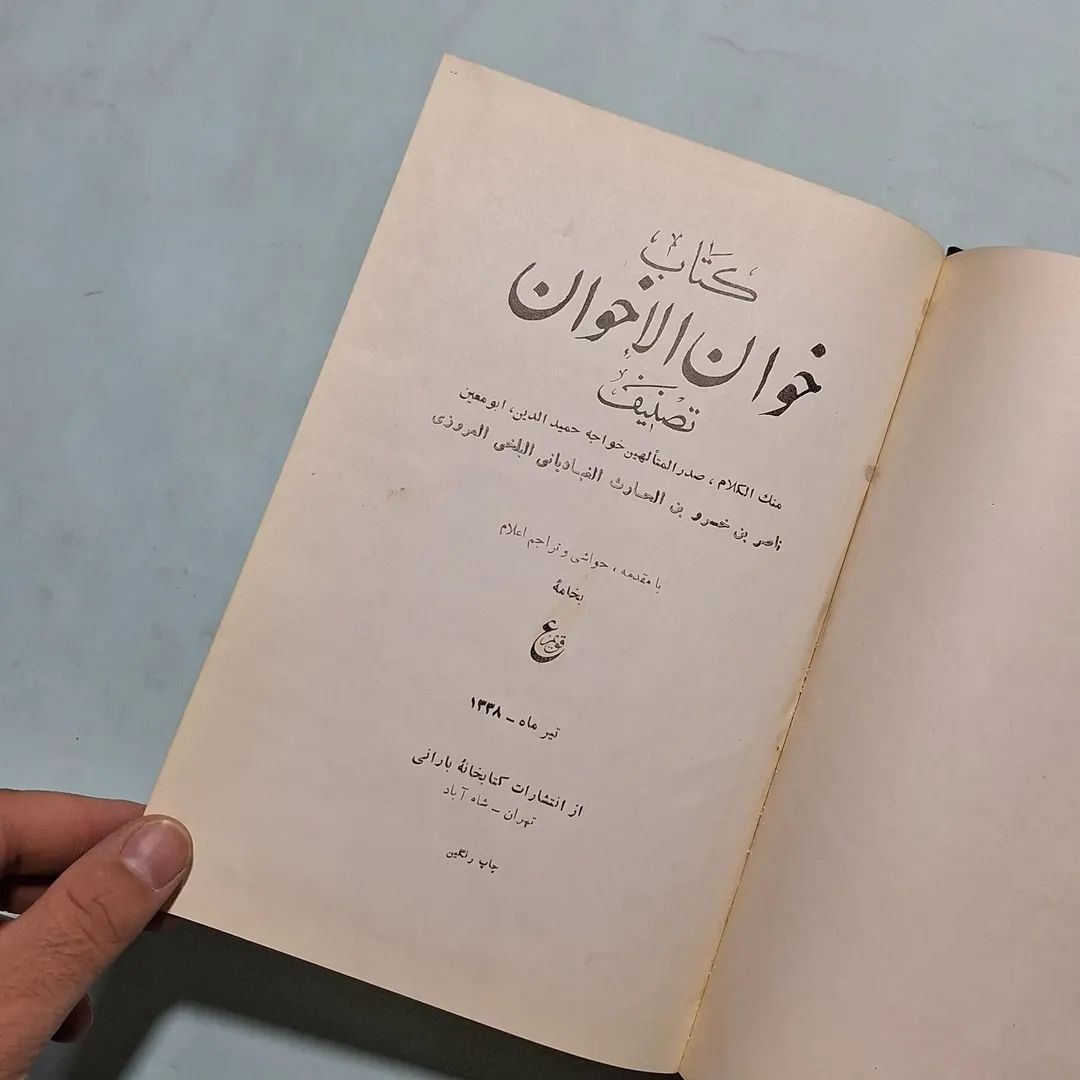 کتاب
خوان الاخوان
تصنیف
ملك الکلام ، صدر المتألهین خواجه حمید الدین، ابو معین
ناصر بن خسرو بن الحارث القبادیانی البلخی المروزی
با مقدمه ، حواشی و تراجم اعلام
بخامهٔ
ع قویم
تیر ماه ـ ۱۳۳۸
از انتشارات کتابخانهٔ بارانی
تهران ـ شاه آباد
چاپ رنگین